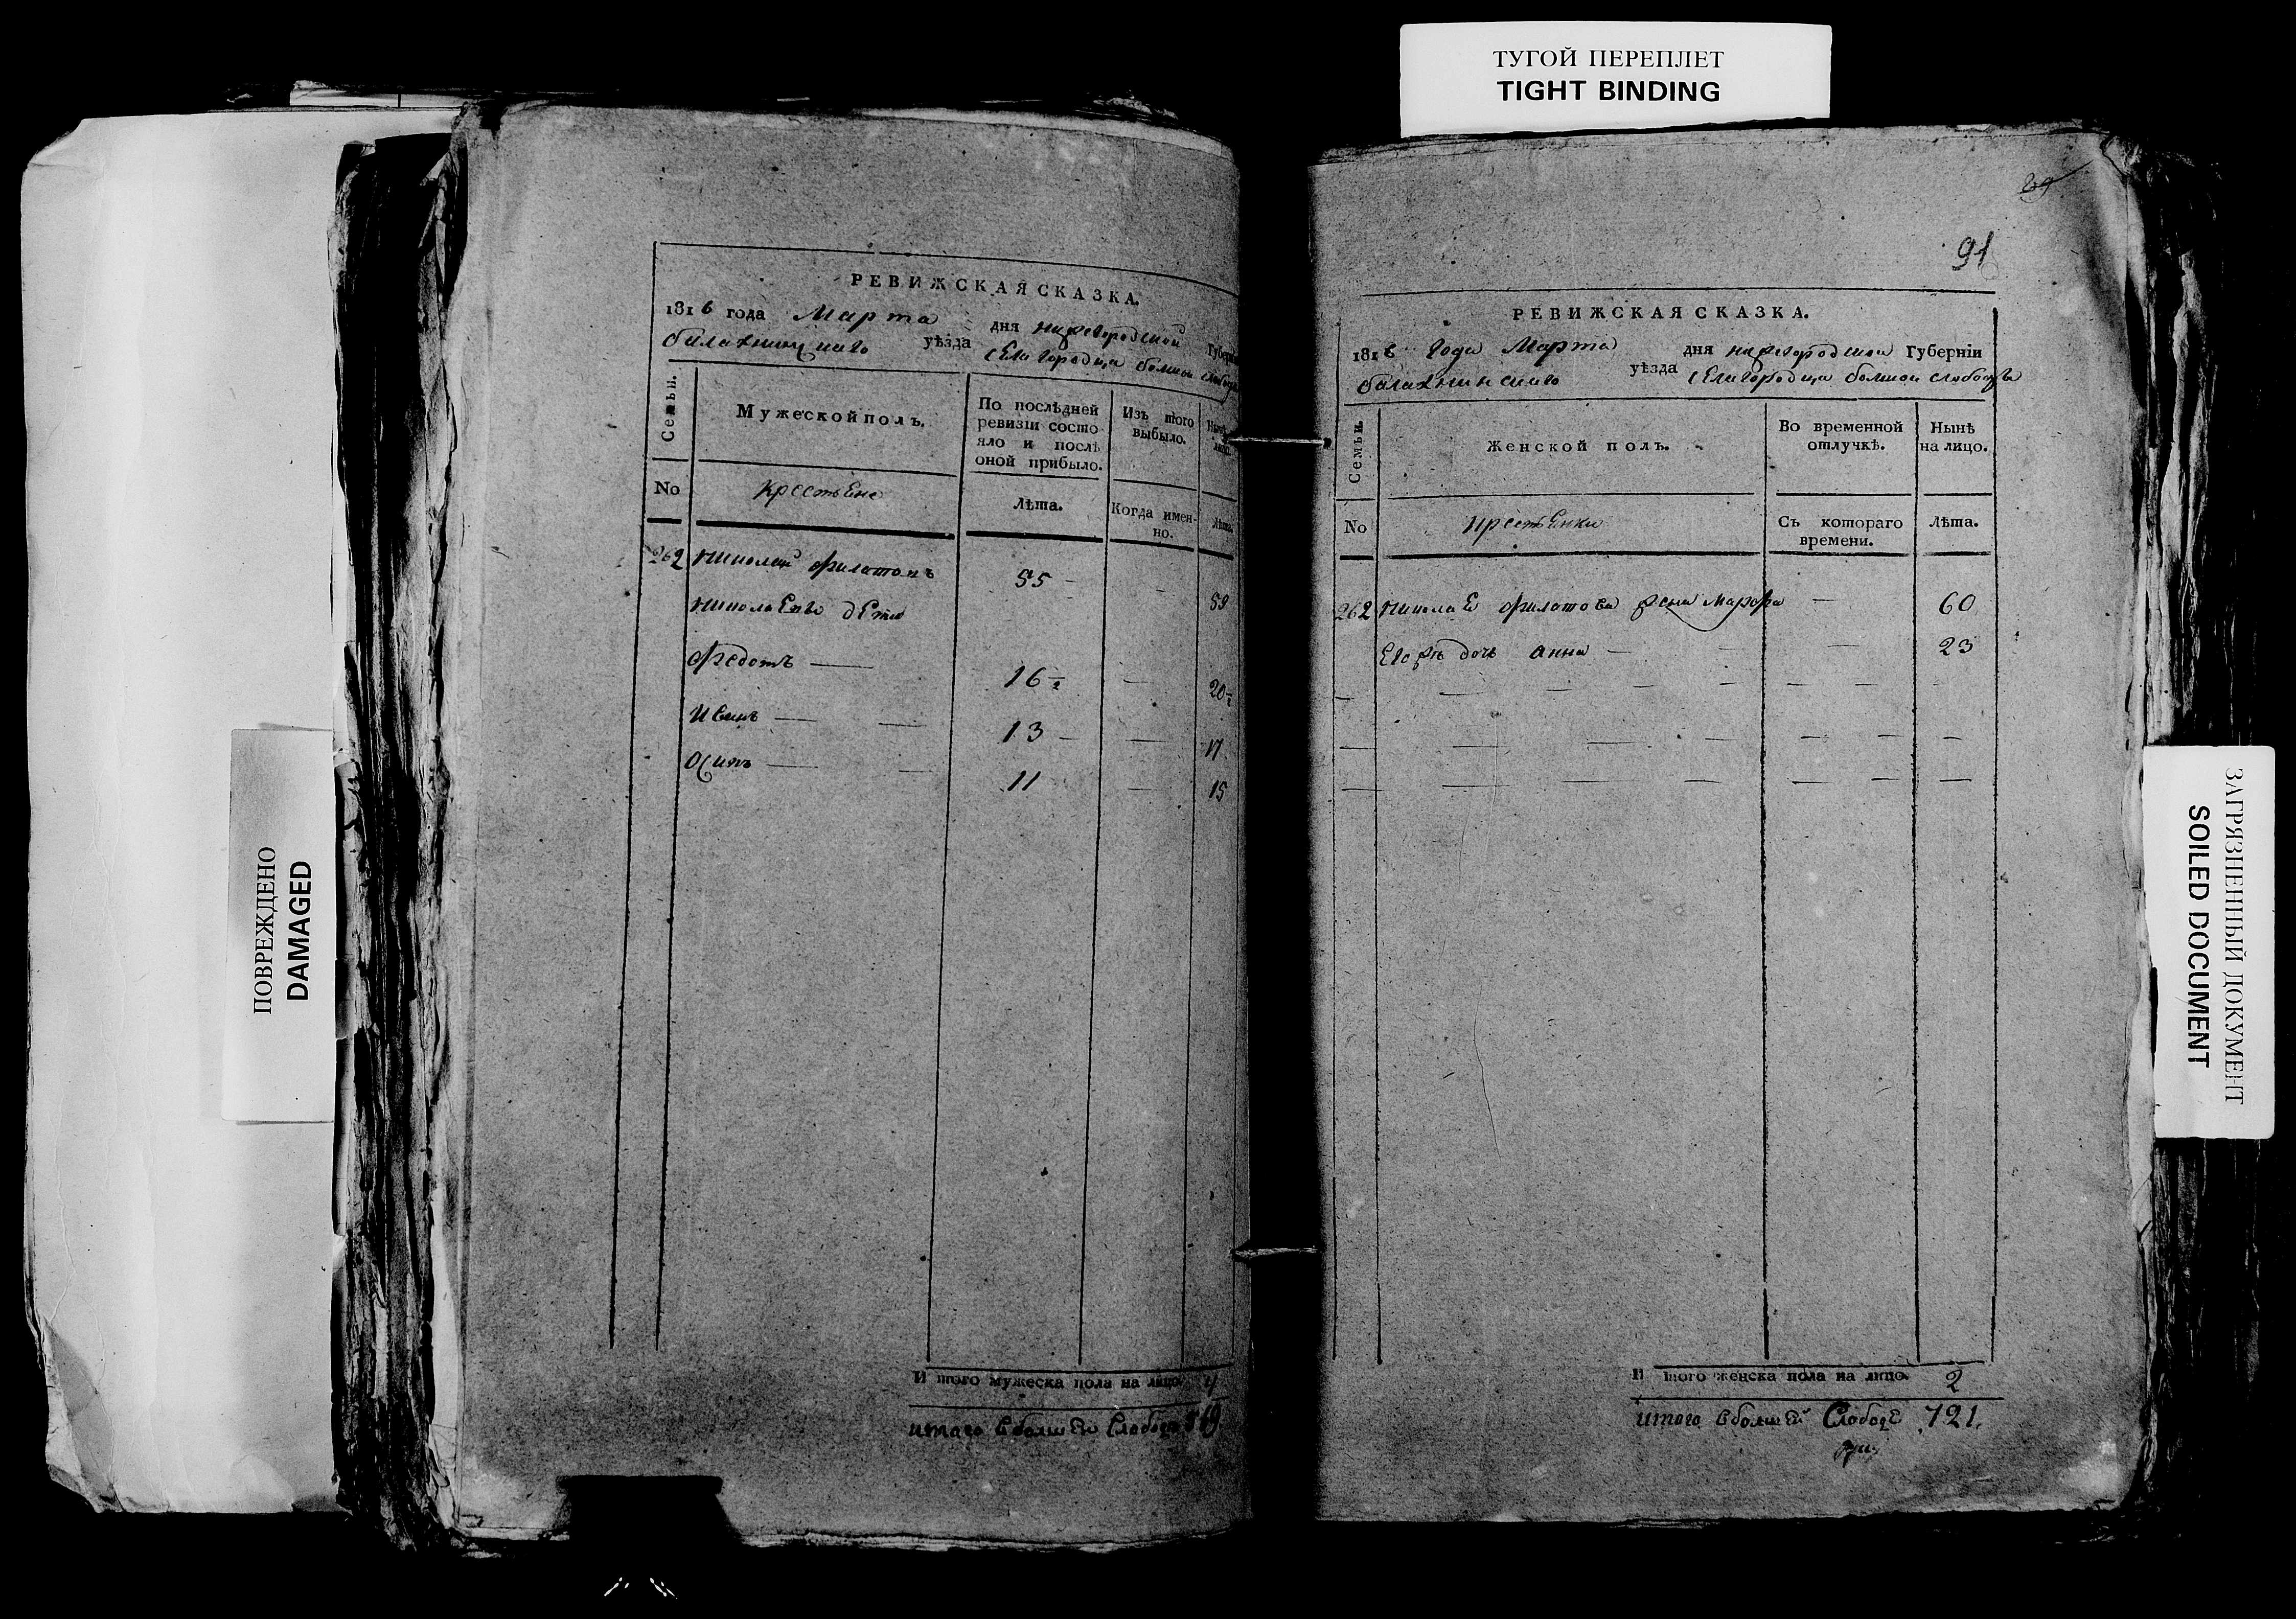 ТУГОЙ ПЕРЕПЛЕТ
TIGHT BINDING
ПОВРЕЖДЕНО
DAMAGED
РЕВИЖСКАЯ СКАЗКА.
1816 года Марта дня нижегородской Губерні
балахнинскаго уѣзда села городца болшои слободы
Семьи.
Мужеской полъ.
По послѣдней ревизіи состояло и послѣ оной прибыло.
Изъ того выбыло.
Нынѣ на лицо.
No
крестьЕне
Лѣта.
Когда именно.
Лѣта.
262 николай филатовъ 55 — — 59
николаЕвы дЕти
федотъ — 16 ½ — 20 ½
Иванъ — — 13 — — 17
Осипъ — — 11 — 15
И того мужеска пола на лицо. 4
итого в болшЕи Слободе
91
РЕВИЖСКАЯ СКАЗКА.
1816 года Марта дня нижегородской Губерніи
балахнинскаго уѣзда села городца болшои слободы
Семьи.
Женской полъ.
Во временной отлучкѣ.
Нынѣ на лицо.
No
крестьЕнки
Съ котораго времени.
Лѣта.
262 николаЕ филатова жена Марфа — 60
Его жъ дочь анна — — — 23
И того женска пола на лицо. 2
итого в болшЕй СлободЕ 721.
ЗАГРЯЗНЕННЫЙ ДОКУМЕНТ
SOILED DOCUMENT